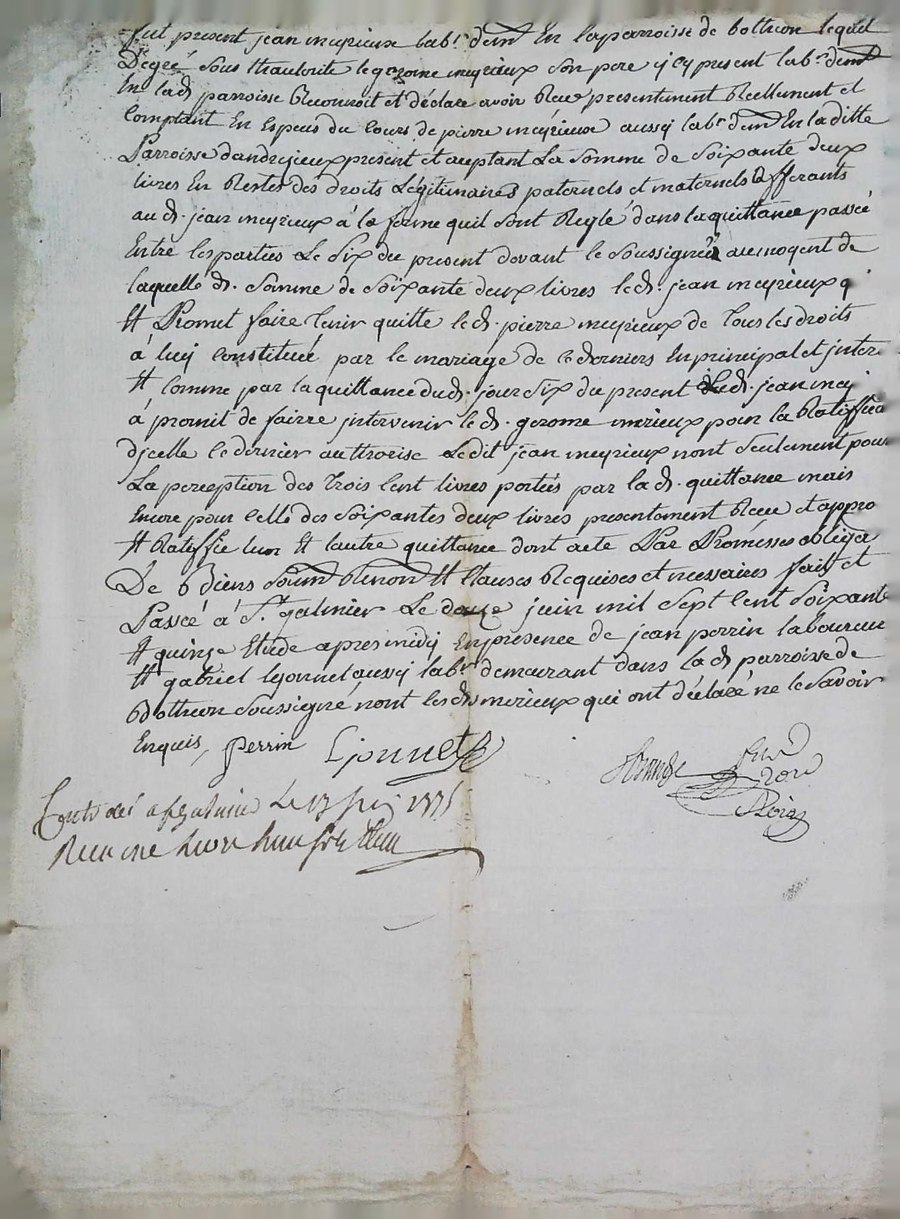 fut present jean meyrieux lab.r dem.t En la parroisse de bothion lequel
Degré sous l'hautorité de gerome meyrieux son pere jcy present lab.r dem.t
En lad. parroisse Reconnoit et déclare avoir Reeu presentement Reellement et
Comptant En Especes du Cours de pierre meyrieux aussy lab.r dem.t En laditte
Parroisse dandrejieux present et aceptant La Somme de Soixante deux
livres En Restes des droits Légitimaires paternels et maternels afferants
au d. jean meyrieux à la forme quil sont Reglé dans la quittance passée
Entre les parties Le Six du present devant le Soussigné au moyent de
laquelle d. Somme de Soixante deux livres led. jean meyrieux q
Et Promet faire tenir quitte led. pierre meyrieux de tous les droits
à luy constitués par le mariage de ce derniers En principal et jnter
Et Comme par la quittance dud. jour Six du present led. jean mey
à promit de fairre jntervenir led. gerome meirieux pour la Ratiffica
djcelle le dernier authorise Ledit jean meyrieux nont Seulement pour
La perception des trois Cent livres portées par lad. quittance mais
Encore pour Celle des Soixantes deux livres presentement Reeue et appro
Et Ratiffie lun Et lautre quittance dont acte Par Promesses obliga
De Biens Soum. Renon. Et Clauses Requises et nessaires fait et
Passé à S.t galmier Le douze juin mil Sept Cent Soixante
Et quinze Etude apres midy En presence de jean perrin laboureur
Et gabriel lyonnet aussy lab.r demeurant dans lad. parroisse de
Bothion Soussigné nont les d. meirieux qui ont déclaré ne le Savoir
Enquis, perrin Lionnet
le 13 juin 1775